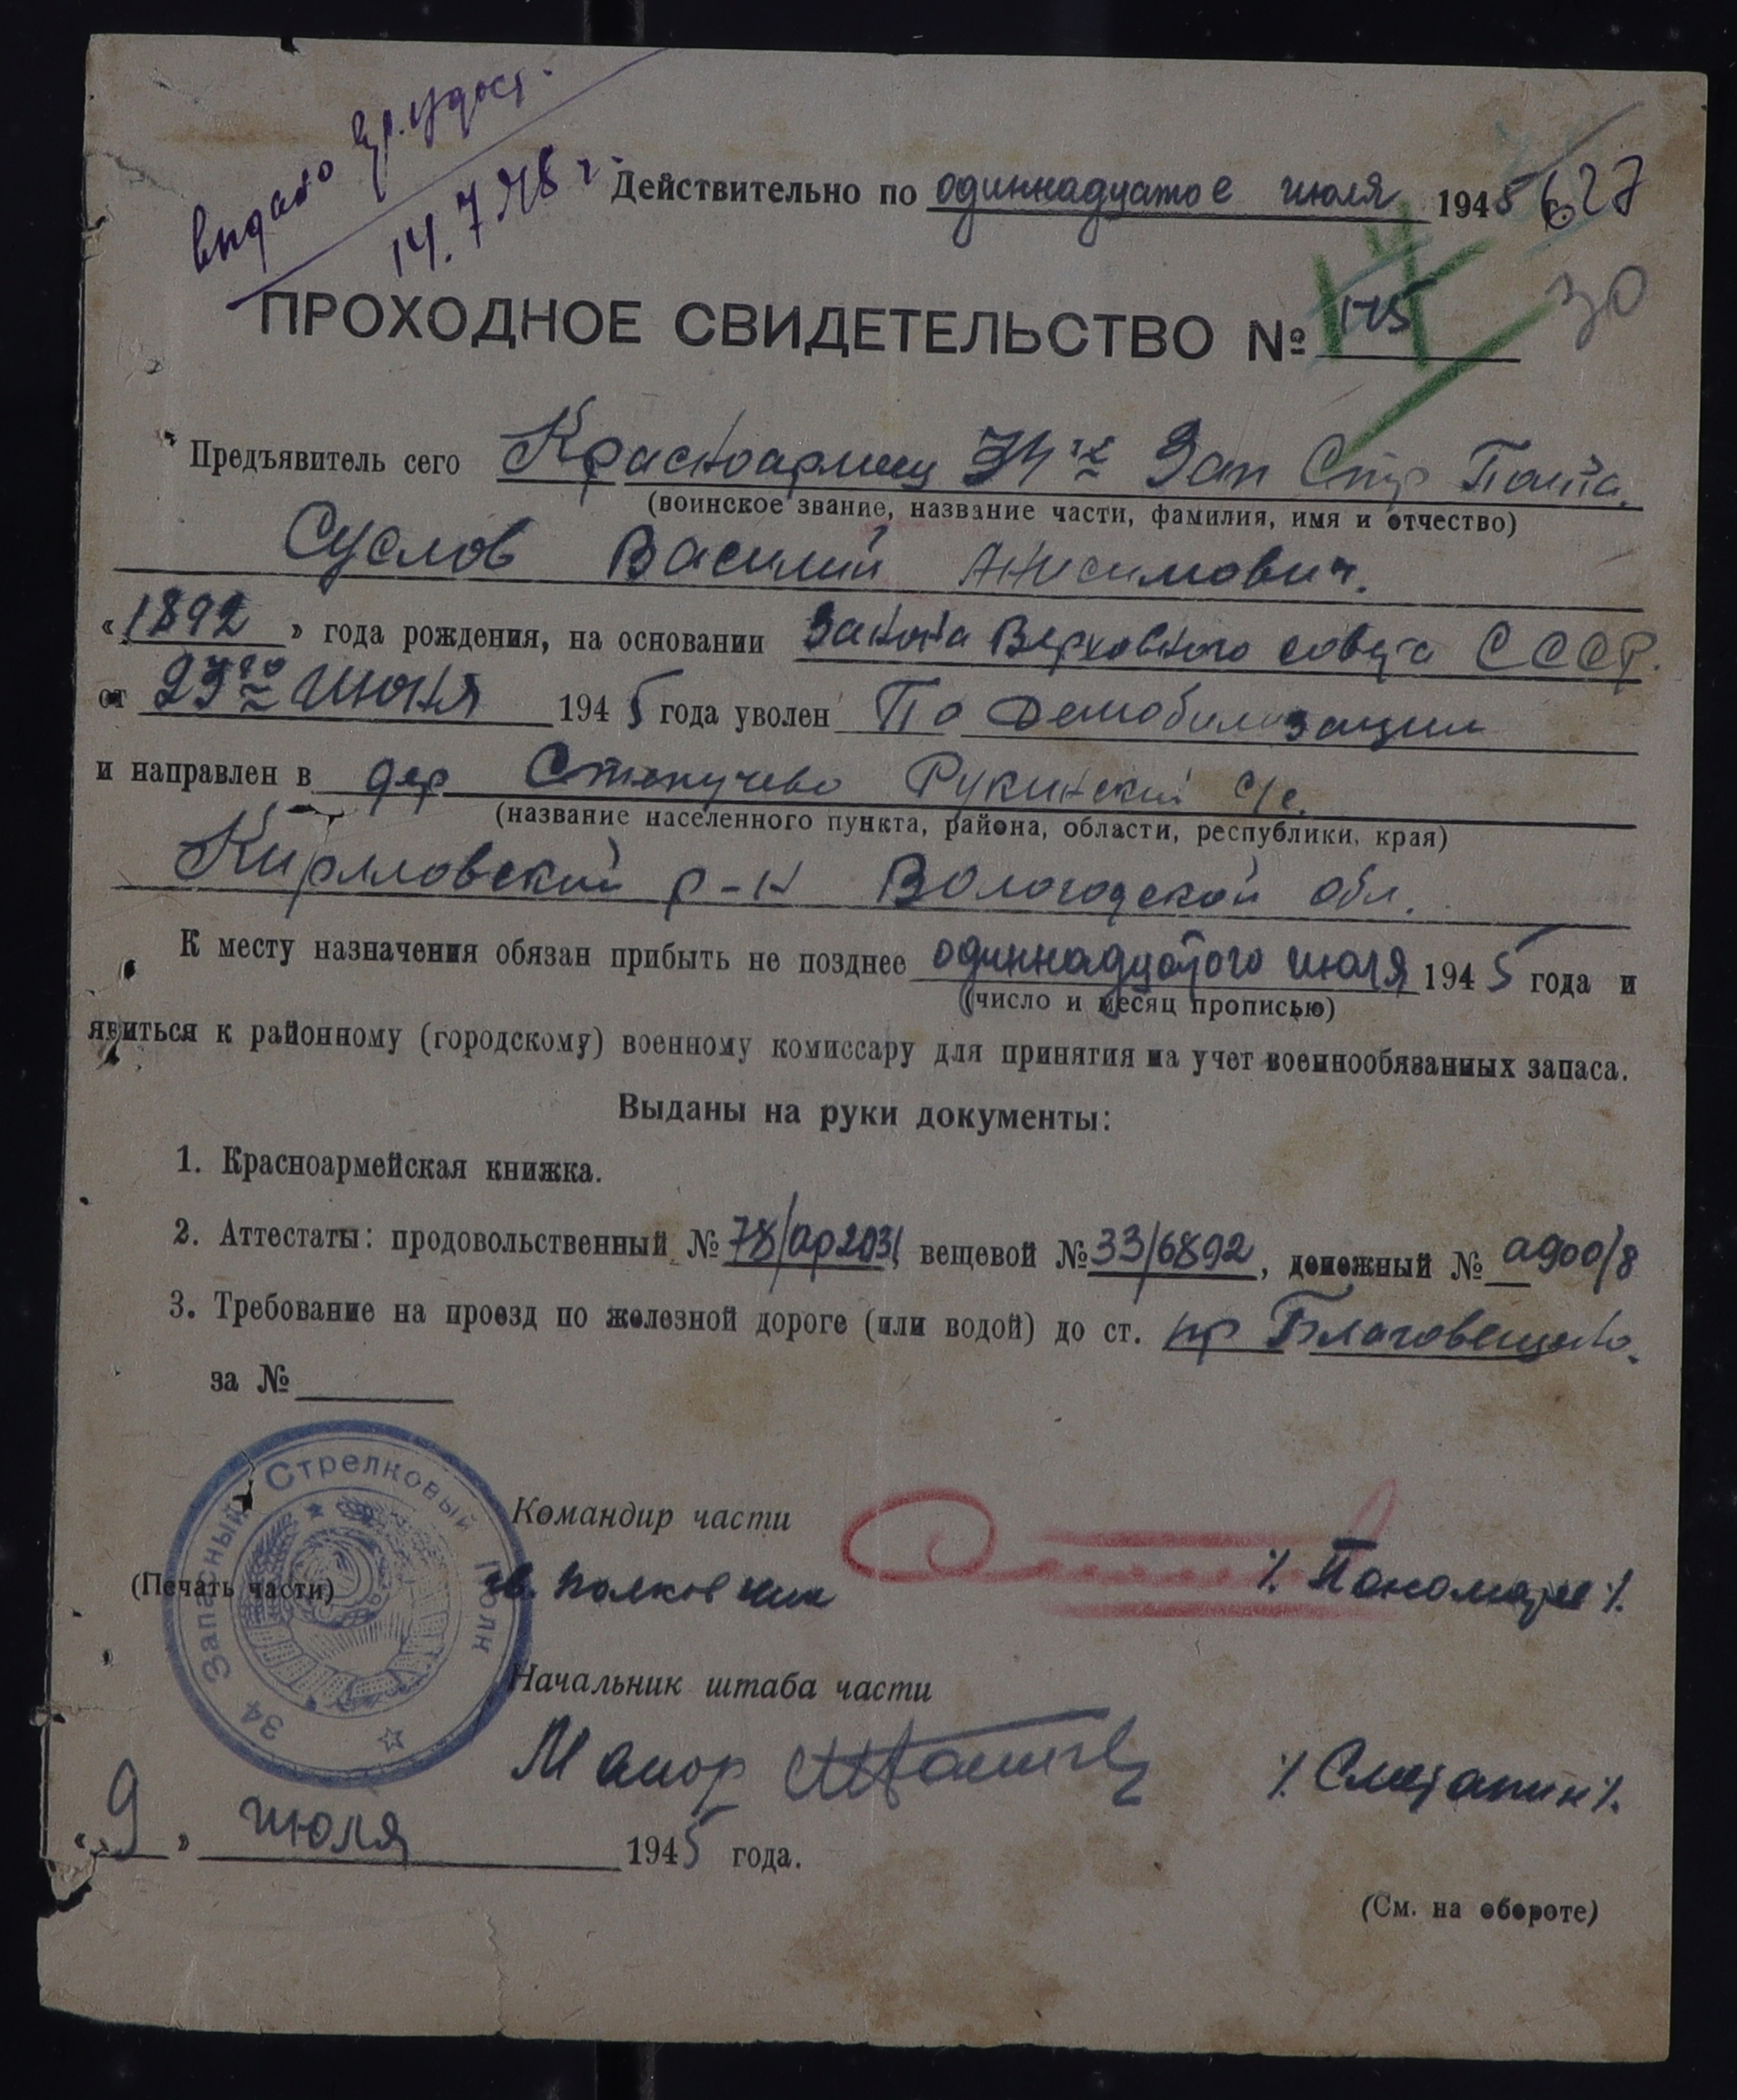 выдано вр. удост.
14.7.48 г
Действительно по одиннадцатое июля 1945 г.
627
30
ПРОХОДНОЕ СВИДЕТЕЛЬСТВО № 175
Предъявитель сего Красноармеец 34го Зап Стр Полка.
(воинское звание, название части, фамилия, имя и отчество)
Суслов Василий Анисимович.
«1892» года рождения, на основании Закона Верховного совета СССР.
от 23го июня 1945 года уволен По демобилизации
и направлен в дер Рукинский с/с.
(название населенного пункта, района, области, республики, края)
Кирилловский р-н Вологодской обл.
К месту назначения обязан прибыть не позднее одиннадцатого июля 1945 года и
(число и месяц прописью)
явиться к районному (городскому) военному комиссару для принятия на учет военнообязанных запаса.
Выданы на руки документы:
1. Красноармейская книжка.
2. Аттестаты: продовольственный № 78/ар2031 вещевой № 33/6892, денежный № а900/8
3. Требование на проезд по железной дороге (или водой) до ст. пр Благовещение.
за №
34 Запасный Стрелковый Полк
Командир части
(Печать части)
гв. полковник /. Пономарев /.
Начальник штаба части
Майор /. Сметанин /.
«9» июля 1945 года.
(См. на обороте)